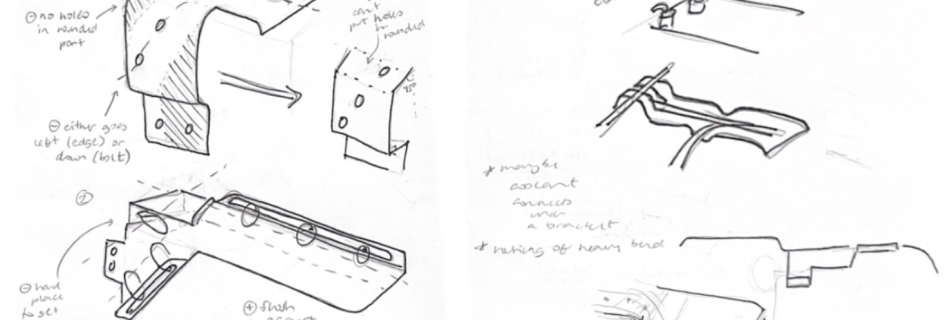 ⊖ no holes
in rounded
part
can't
put holes
in
rounded
⊖ either goes
left (edge) or
down (bolt)
②
⊖ hard
place
to get
⊕ flush
* maybe
coolant
connects
over
a bracket
* noting of heavy bend